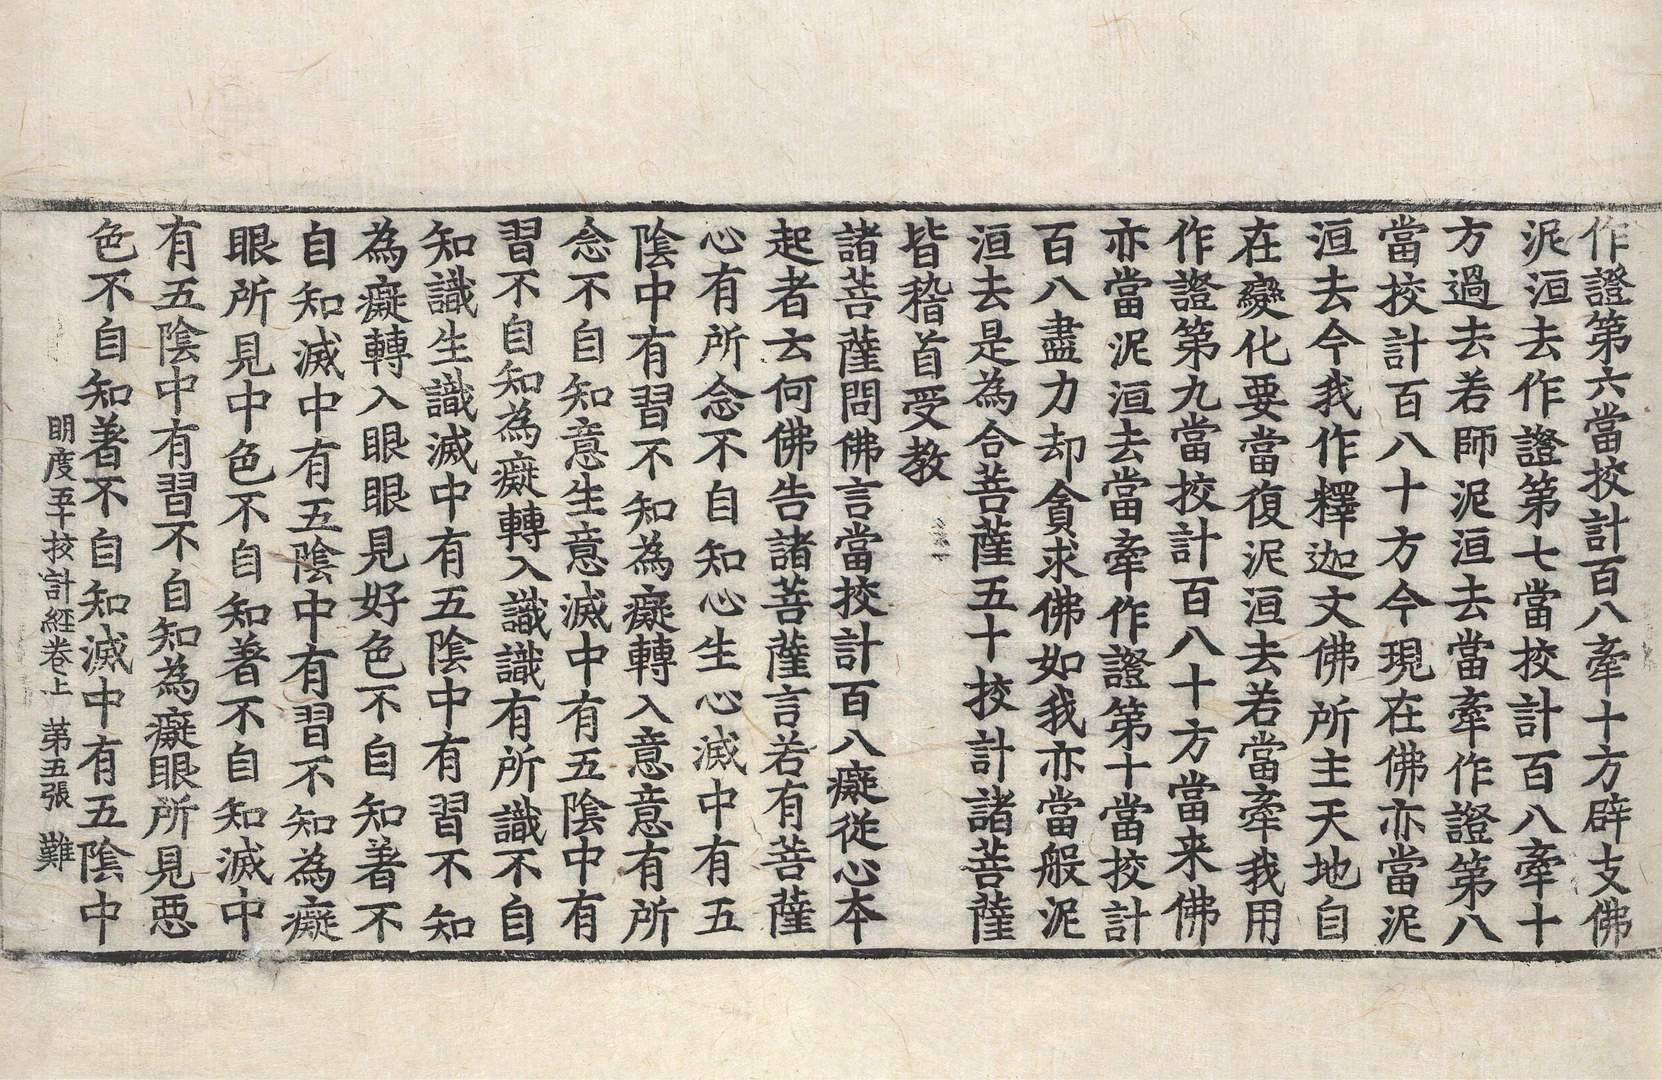 作證第六當挍計百八牽十方辟支佛
泥洹去作證第七當挍計百八牽十
方過去若師泥洹去當牽作證第八
當挍計百八十方今現在佛亦當泥
洹去今我作釋迦文佛所主天地自
在變化要當復泥洹去若當牽我用
作證第九當挍計百八十方當来佛
亦當泥洹去當牽作證第十當挍計
百八盡力却貪求佛如我亦當般泥
洹去是為合菩薩五十挍計諸菩薩
皆稽首受教
諸菩薩問佛言當挍計百八癡從心本
起者云何佛告諸菩薩言若有菩薩
心有所念不自知心生心滅中有五
陰中有習不知為癡轉入意意有所
念不自知意生意滅中有五陰中有
習不自知為癡轉入識識有所識不自
知識生識滅中有五陰中有習不知
為癡轉入眼眼見好色不自知著不
自知滅中有五陰中有習不知為癡
眼所見中色不自知著不自知滅中
有五陰中有習不自知為癡眼所見惡
色不自知著不自知滅中有五陰中
明度五十挍計經卷上 第五張 難